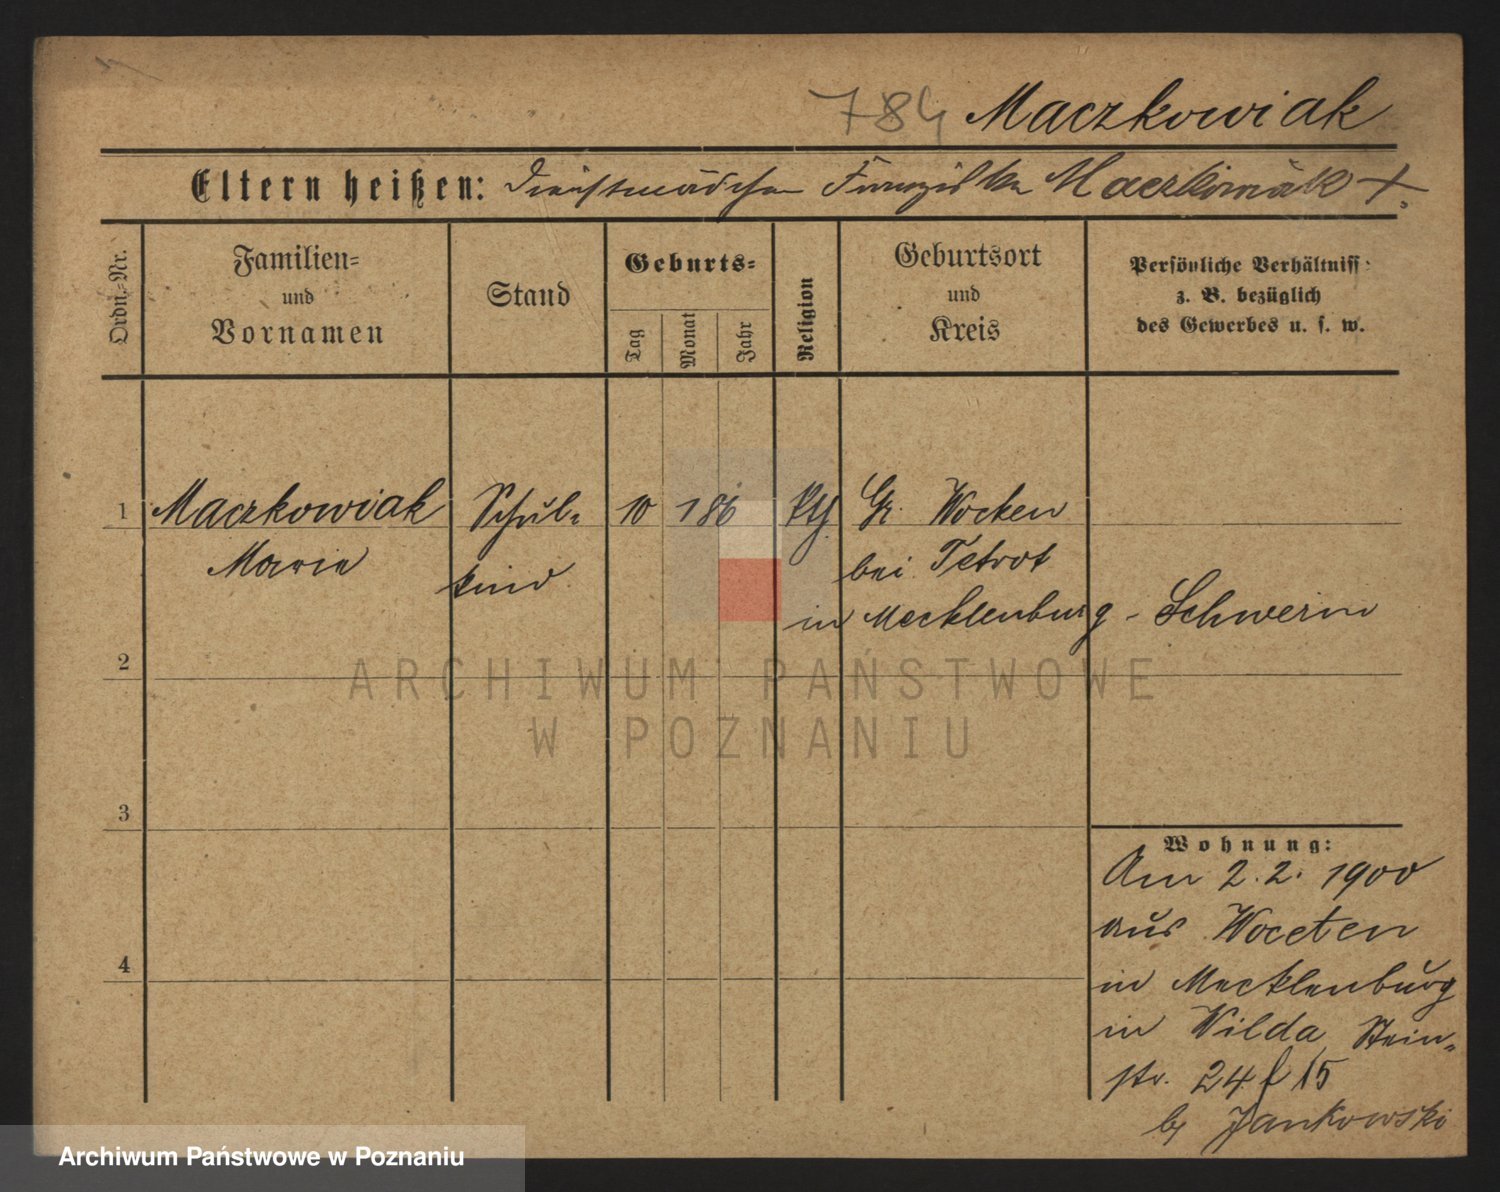 784 Maczkowiak
Eltern heißen: Dienstmädchen Franziska Maczkowiak +.
Ordn.-Nr.
Familien-
und
Vornamen
Stand
Geburts-
Tag
Monat
Jahr
Religion
Geburtsort
und
Kreis
Persönliche Verhältniss
z. B. bezüglich
des Gewerbes u. s. w.
1 Maczkowiak Schul- 10 1 86 kth Gr. Wocken
Marie kind bei Tetrot
in Mecklenburg - Schwerin
2
ARCHIWUM PAŃSTWOWE
W POZNANIU
3
Wohnung:
Am 2. 2. 1900
aus Wocten
in Mecklenburg
in Wilda Stein-
str. 24 15
by Jankowski
4
Archiwum Państwowe w Poznaniu